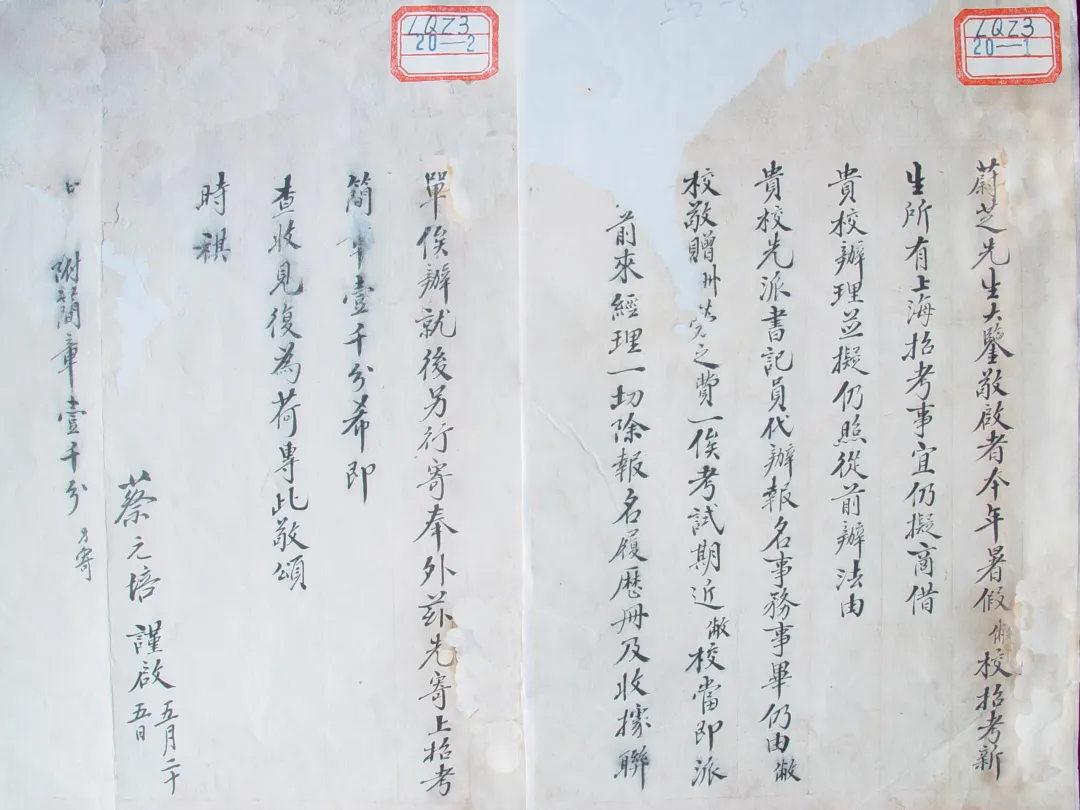 LQZ3
20—1
蔚芝先生大鑒敬啟者今年暑假敝校招考新
生所有上海招考事宜仍擬商借
貴校辦理並擬仍照從前辦法由
貴校先派書記員代辦報名事務事畢仍由敝
校敬贈卅之費一俟考試期近敝校當即派
前來經理一切除報名履歷冊及收據聯
LQZ3
20—2
單俟辦就後另行寄奉外茲先寄上招考
簡章壹千分希即
查收見復為荷專此敬頌
時祺
蔡元培 謹啟 五月二十
五日
附簡章壹千分 另寄